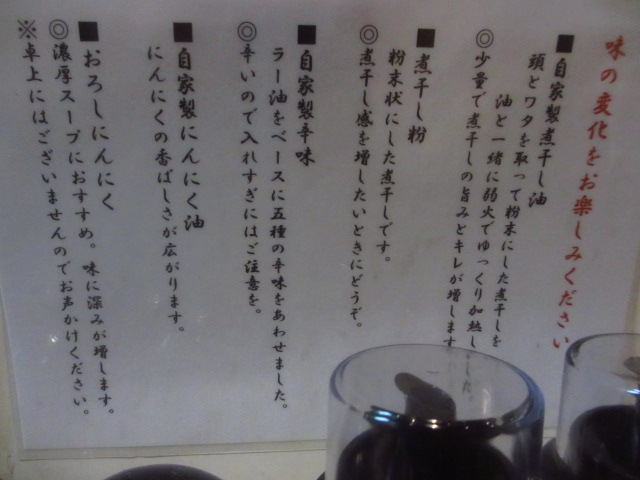 味の変化をお楽しみください
■自家製煮干し油
頭とワタを取って粉末にした煮干しを
油と一緒に弱火でゆっくり加熱しました。
◎少量で煮干しの旨みとキレが増します
■煮干し粉
粉末状にした煮干しです。
◎煮干し感を増したいときにどうぞ。
■自家製辛味
ラー油をベースに五種の辛味をあわせました。
◎辛いので入れすぎにはご注意を。
■自家製にんにく油
にんにくの香ばしさが広がります。
■おろしにんにく
◎濃厚スープにおすすめ。味に深みが増します。
※卓上にはございませんのでお声かけください。